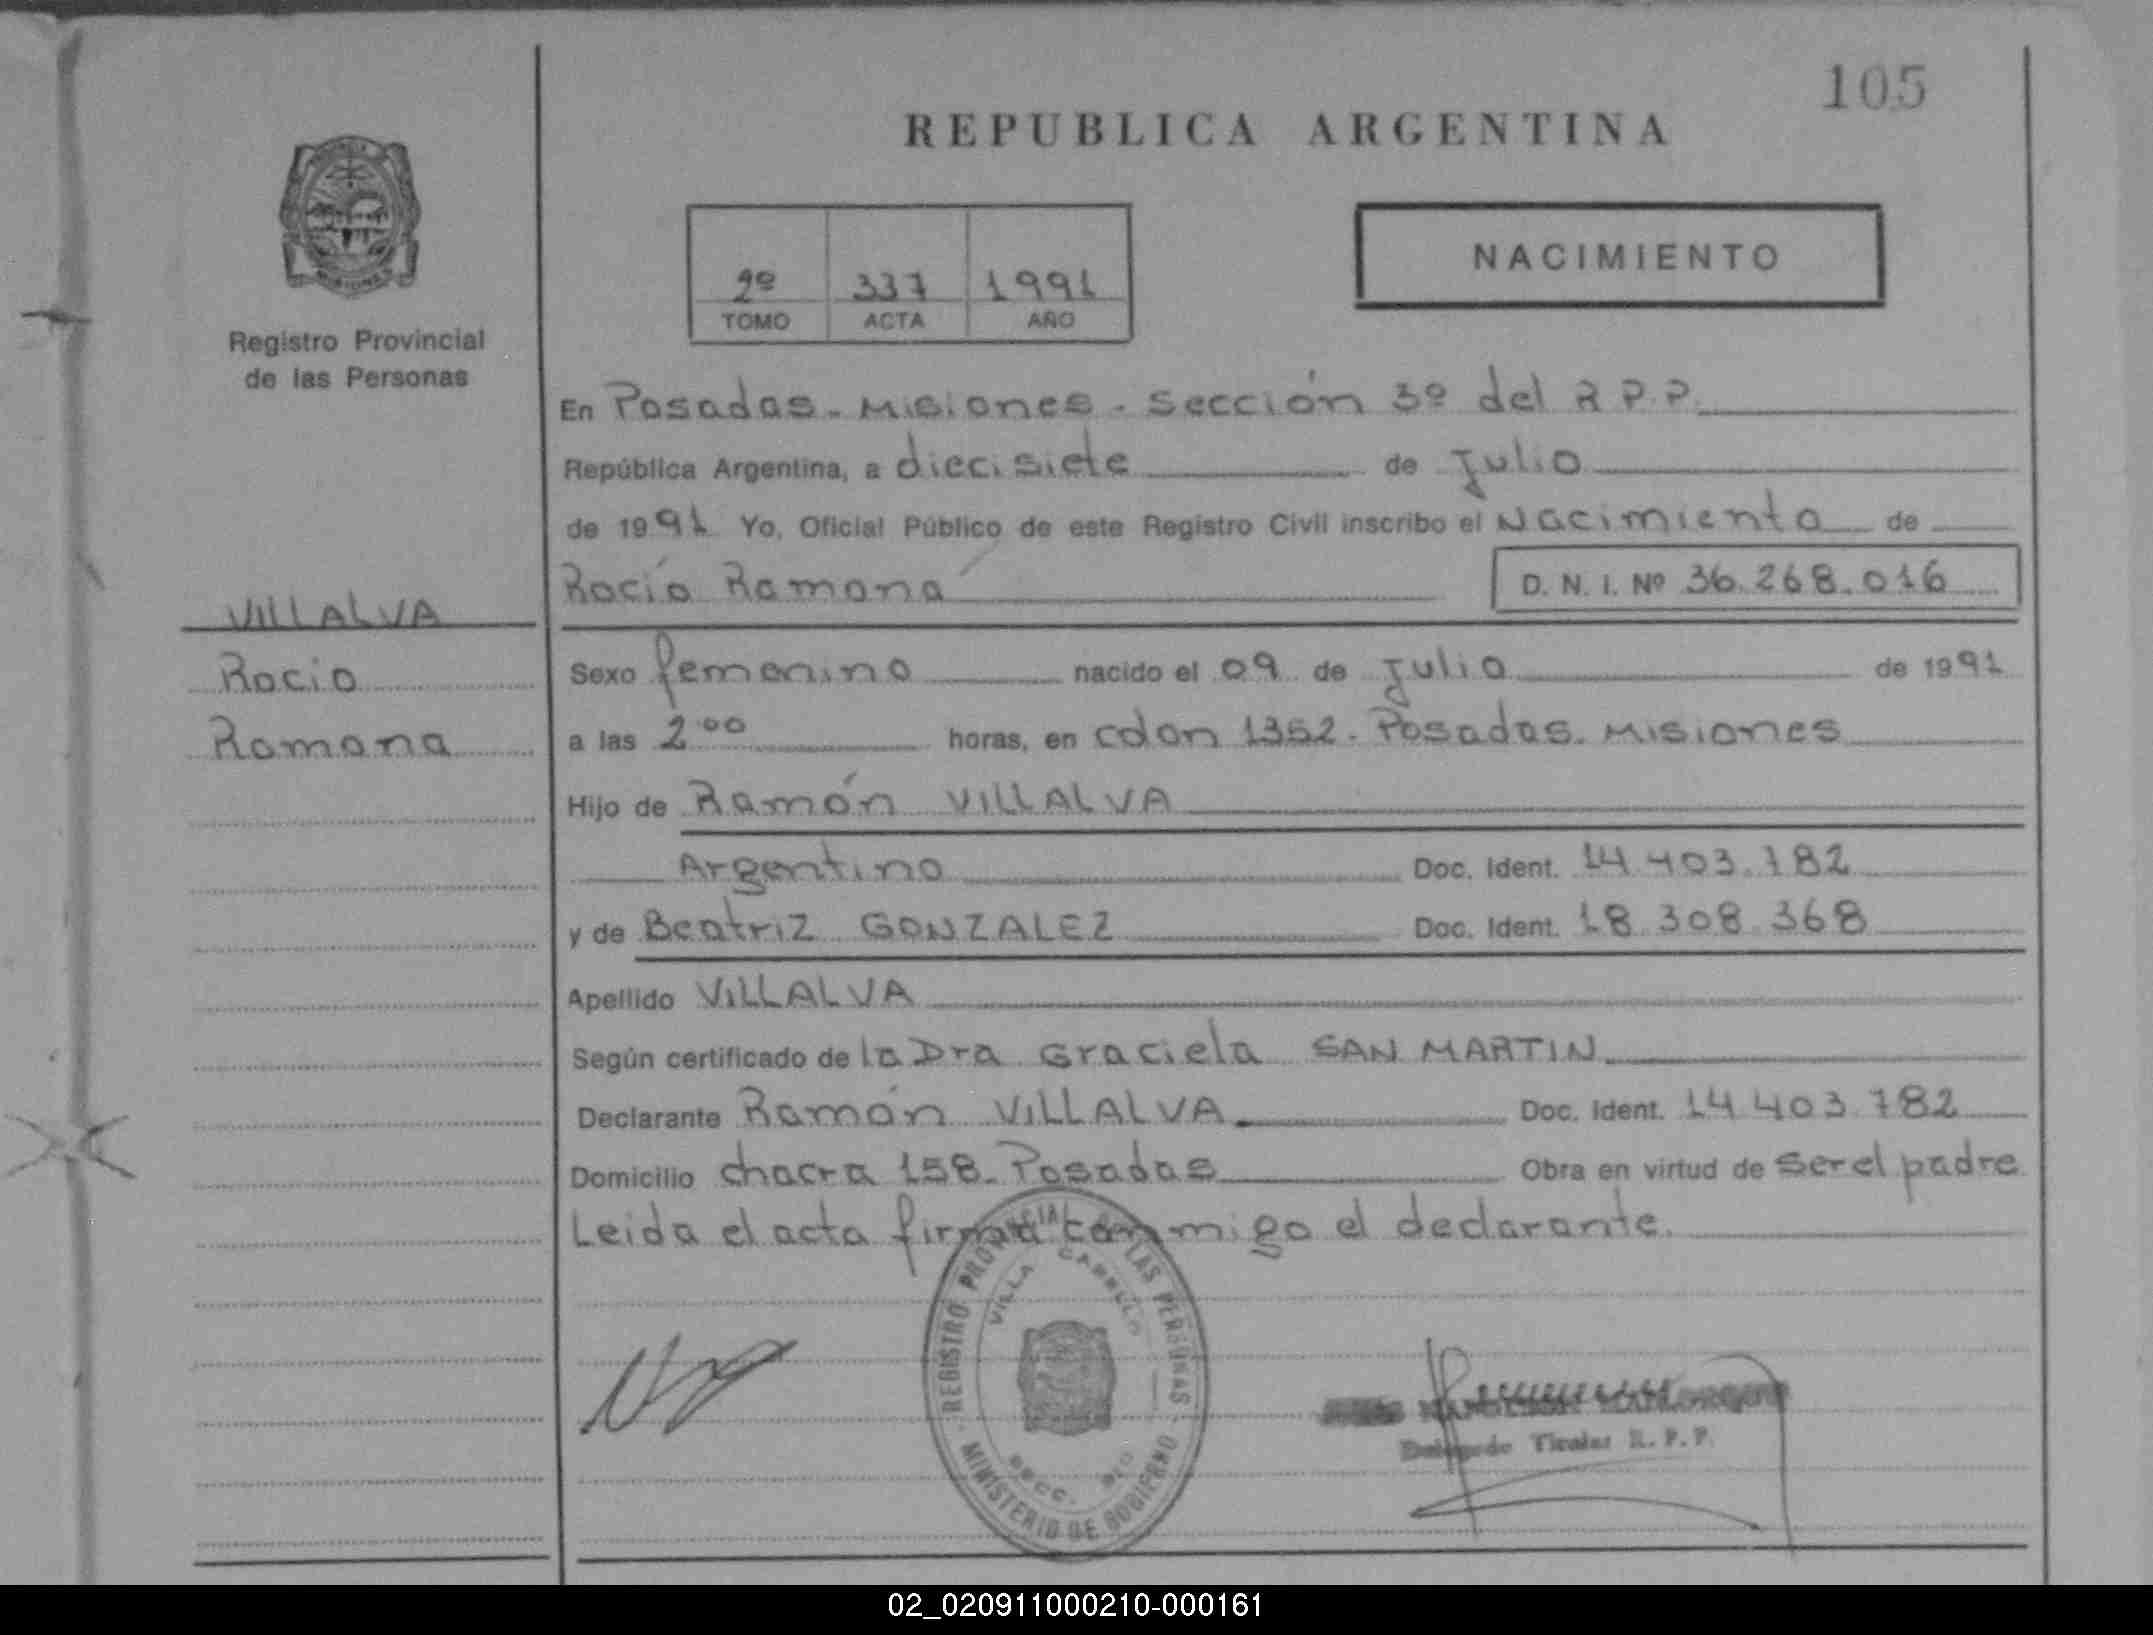 105
REPUBLICA ARGENTINA
2º 337 1991
TOMO ACTA AÑO
NACIMIENTO
Registro Provincial
de las Personas
En Posadas - Misiones - Sección 3º del R.P.P.
República Argentina, a diecisiete de Julio
de 1991 Yo, Oficial Público de este Registro Civil inscribo el Nacimiento de
Rocío Ramona D. N. I. Nº 36.268.016
VILLALVA
Rocio
Ramona
Sexo femenino nacido el 09 de Julio de 1991
a las 2:00 horas, en colon 1352 - Posadas - Misiones
Hijo de Ramón VILLALVA
Argentino Doc. Ident. 14.403.782
y de Beatriz GONZALEZ Doc. Ident. 18.308.368
Apellido VILLALVA
Según certificado de la Dra Graciela SAN MARTIN
Declarante Ramón VILLALVA Doc. Ident. 14.403.782
Domicilio chacra 158 - Posadas Obra en virtud de ser el padre
Leida el acta firma conmigo el declarante.
REGISTRO PROVINCIAL DE LAS PERSONAS
VILLA CABELLO
SECC. 3ra
MINISTERIO DE GOBIERNO
Delegado Titular R.P.P.
02_020911000210-000161